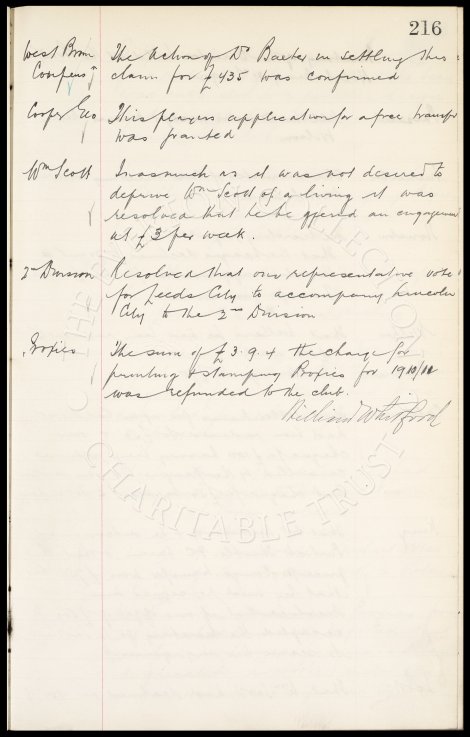 216
West Brom The Action of Dr Baxter in settling this
Compens^n claim for £435 was confirmed
Cooper Geo This players application for a free transfer
was granted
Wm Scott Inasmuch as it was not desired to
deprive Wm Scott of a living it was
resolved that he be offered an engagement
at £3 per week.
2nd Division Resolved that our representative vote
for Leeds City to accompany Lincoln
City to the 2nd Division
Proxies The sum of £3.9.4 the charge for
printing & stamping Proxies for 1910/11
was refunded to the club.
William Whitford
THE EVERTON COLLECTION
CHARITABLE TRUST